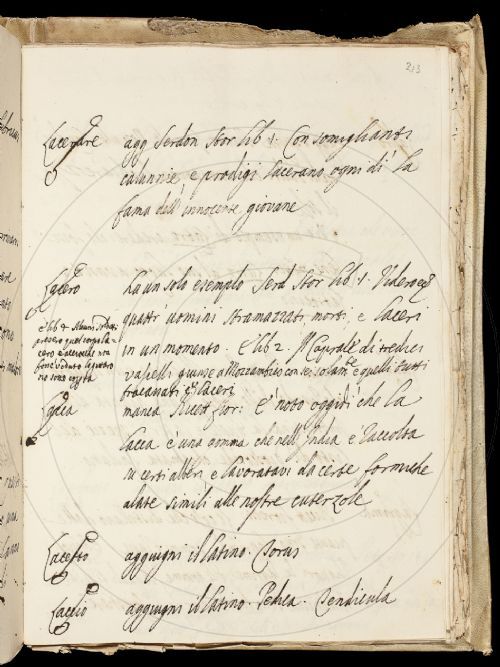 213
Lacerare agg Serdon Stor lib 1. Con somiglianti
calunnie e prodigi lacerano ogni dì la
fama dell'innocente giovane
Lacero ha un solo esempio Serd Stor lib. 1.
quattr'uomini stramazzati, morti, e laceri
in un momento. E lib 2. di tredici
vaselli giunse a Mozzambico con sei e quelli tutti
fracassati e laceri
E lib 4
Lacca manca Ricet fior: E noto oggidì che la
lacca è una gomma che nell'India è raccolta
su certi alberi, e lavoratavi da certe formiche
alate simili alle nostre cuterzole
Laceto aggiugni il latino.
Laccio aggiugni il latino. Pedica. Tendicula